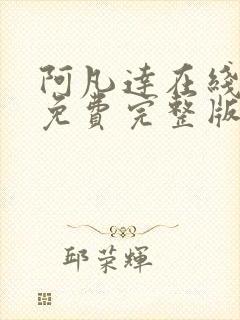 阿凡達在綫
免費完整版
邱荣輝